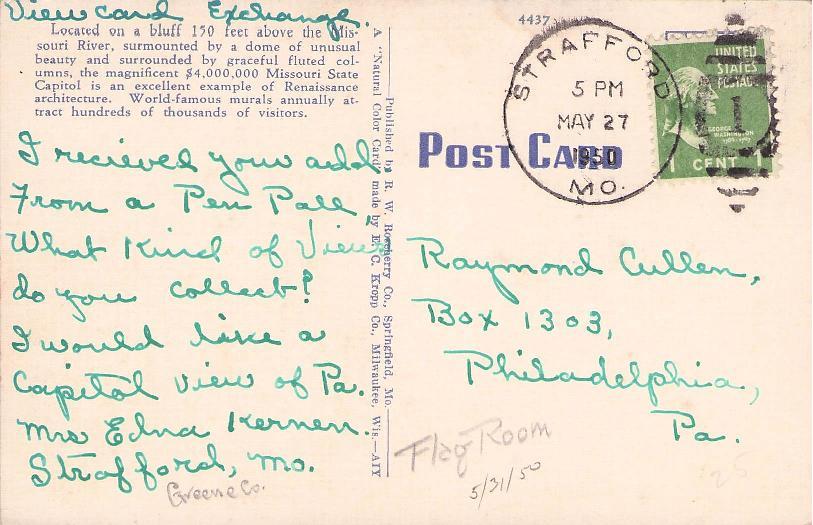 Viewcard Exchange.
Located on a bluff 150 feet above the Mis-
souri River, surmounted by a dome of unusual
beauty and surrounded by graceful fluted col-
umns, the magnificent $4,000,000 Missouri State
Capitol is an excellent example of Renaissance
architecture. World-famous murals annually at-
tract hundreds of thousands of visitors.
I recieved your add
From a Pen Pall,
What Kind of Views
do you collect?
I would like a
Capital view of Pa.
Mrs Edna Kernen.
Strafford, Mo.
Greene Co.
A "Natural Color Card" made by E. C. Kropp Co., Milwaukee, Wis.—AIY
—Published by R. W. Boscherry Co., Springfield, Mo.—
4437
STRAFFORD
5 PM
MAY 27
1950
MO.
UNITED
STATES
POSTAGE
1
GEORGE
WASHINGTON
1 CENT 1
POST CARD
Raymond Cullen,
Box 1303,
Philadelphia,
Pa.
Flag Room
5/31/50
25